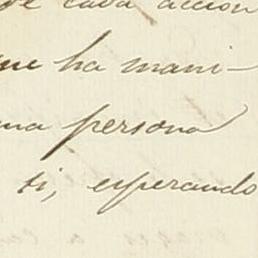 de cada acción
que ha mani-
una persona
ti, esperando